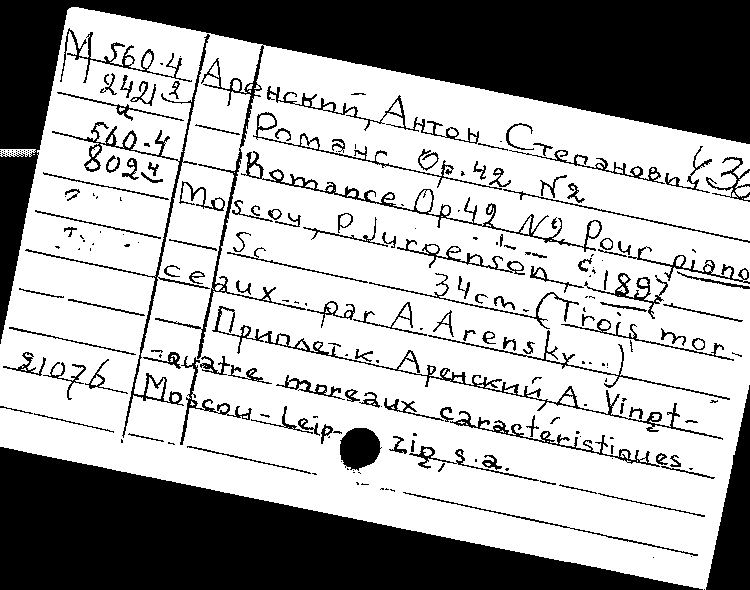 М 560-4
2421 2
и
560-4
802 4
Аренский, Антон Степанович
Романс Op. 42, N2
Romance. Op. 42 N2. Pour piano
Moscou, P. Jurgenson, c. 1897.
5 с. 34 cm. (Trois mor-
ceaux... par A. Arensky...)
Приплет. к. Аренский, А. Vingt-
-quatre moreaux caractéristiques.
Moscou - Leip- zig, s.a.
21076